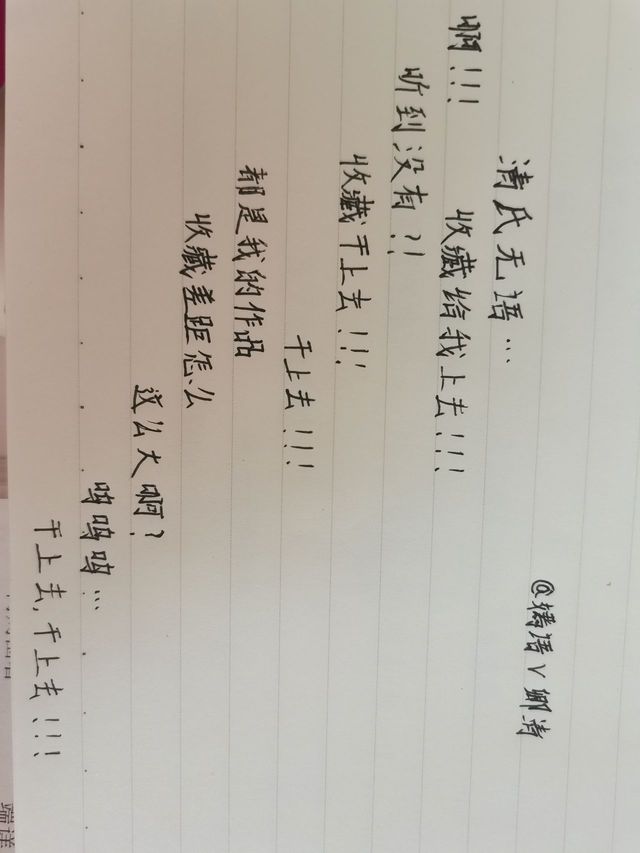 清氏无语…
啊!!! 收藏给我上去!!!
听到没有?!
收藏干上去!!!
干上去!!!
都是我的作品
收藏差距怎么
这么大啊?
呜呜呜…
干上去,干上去!!!